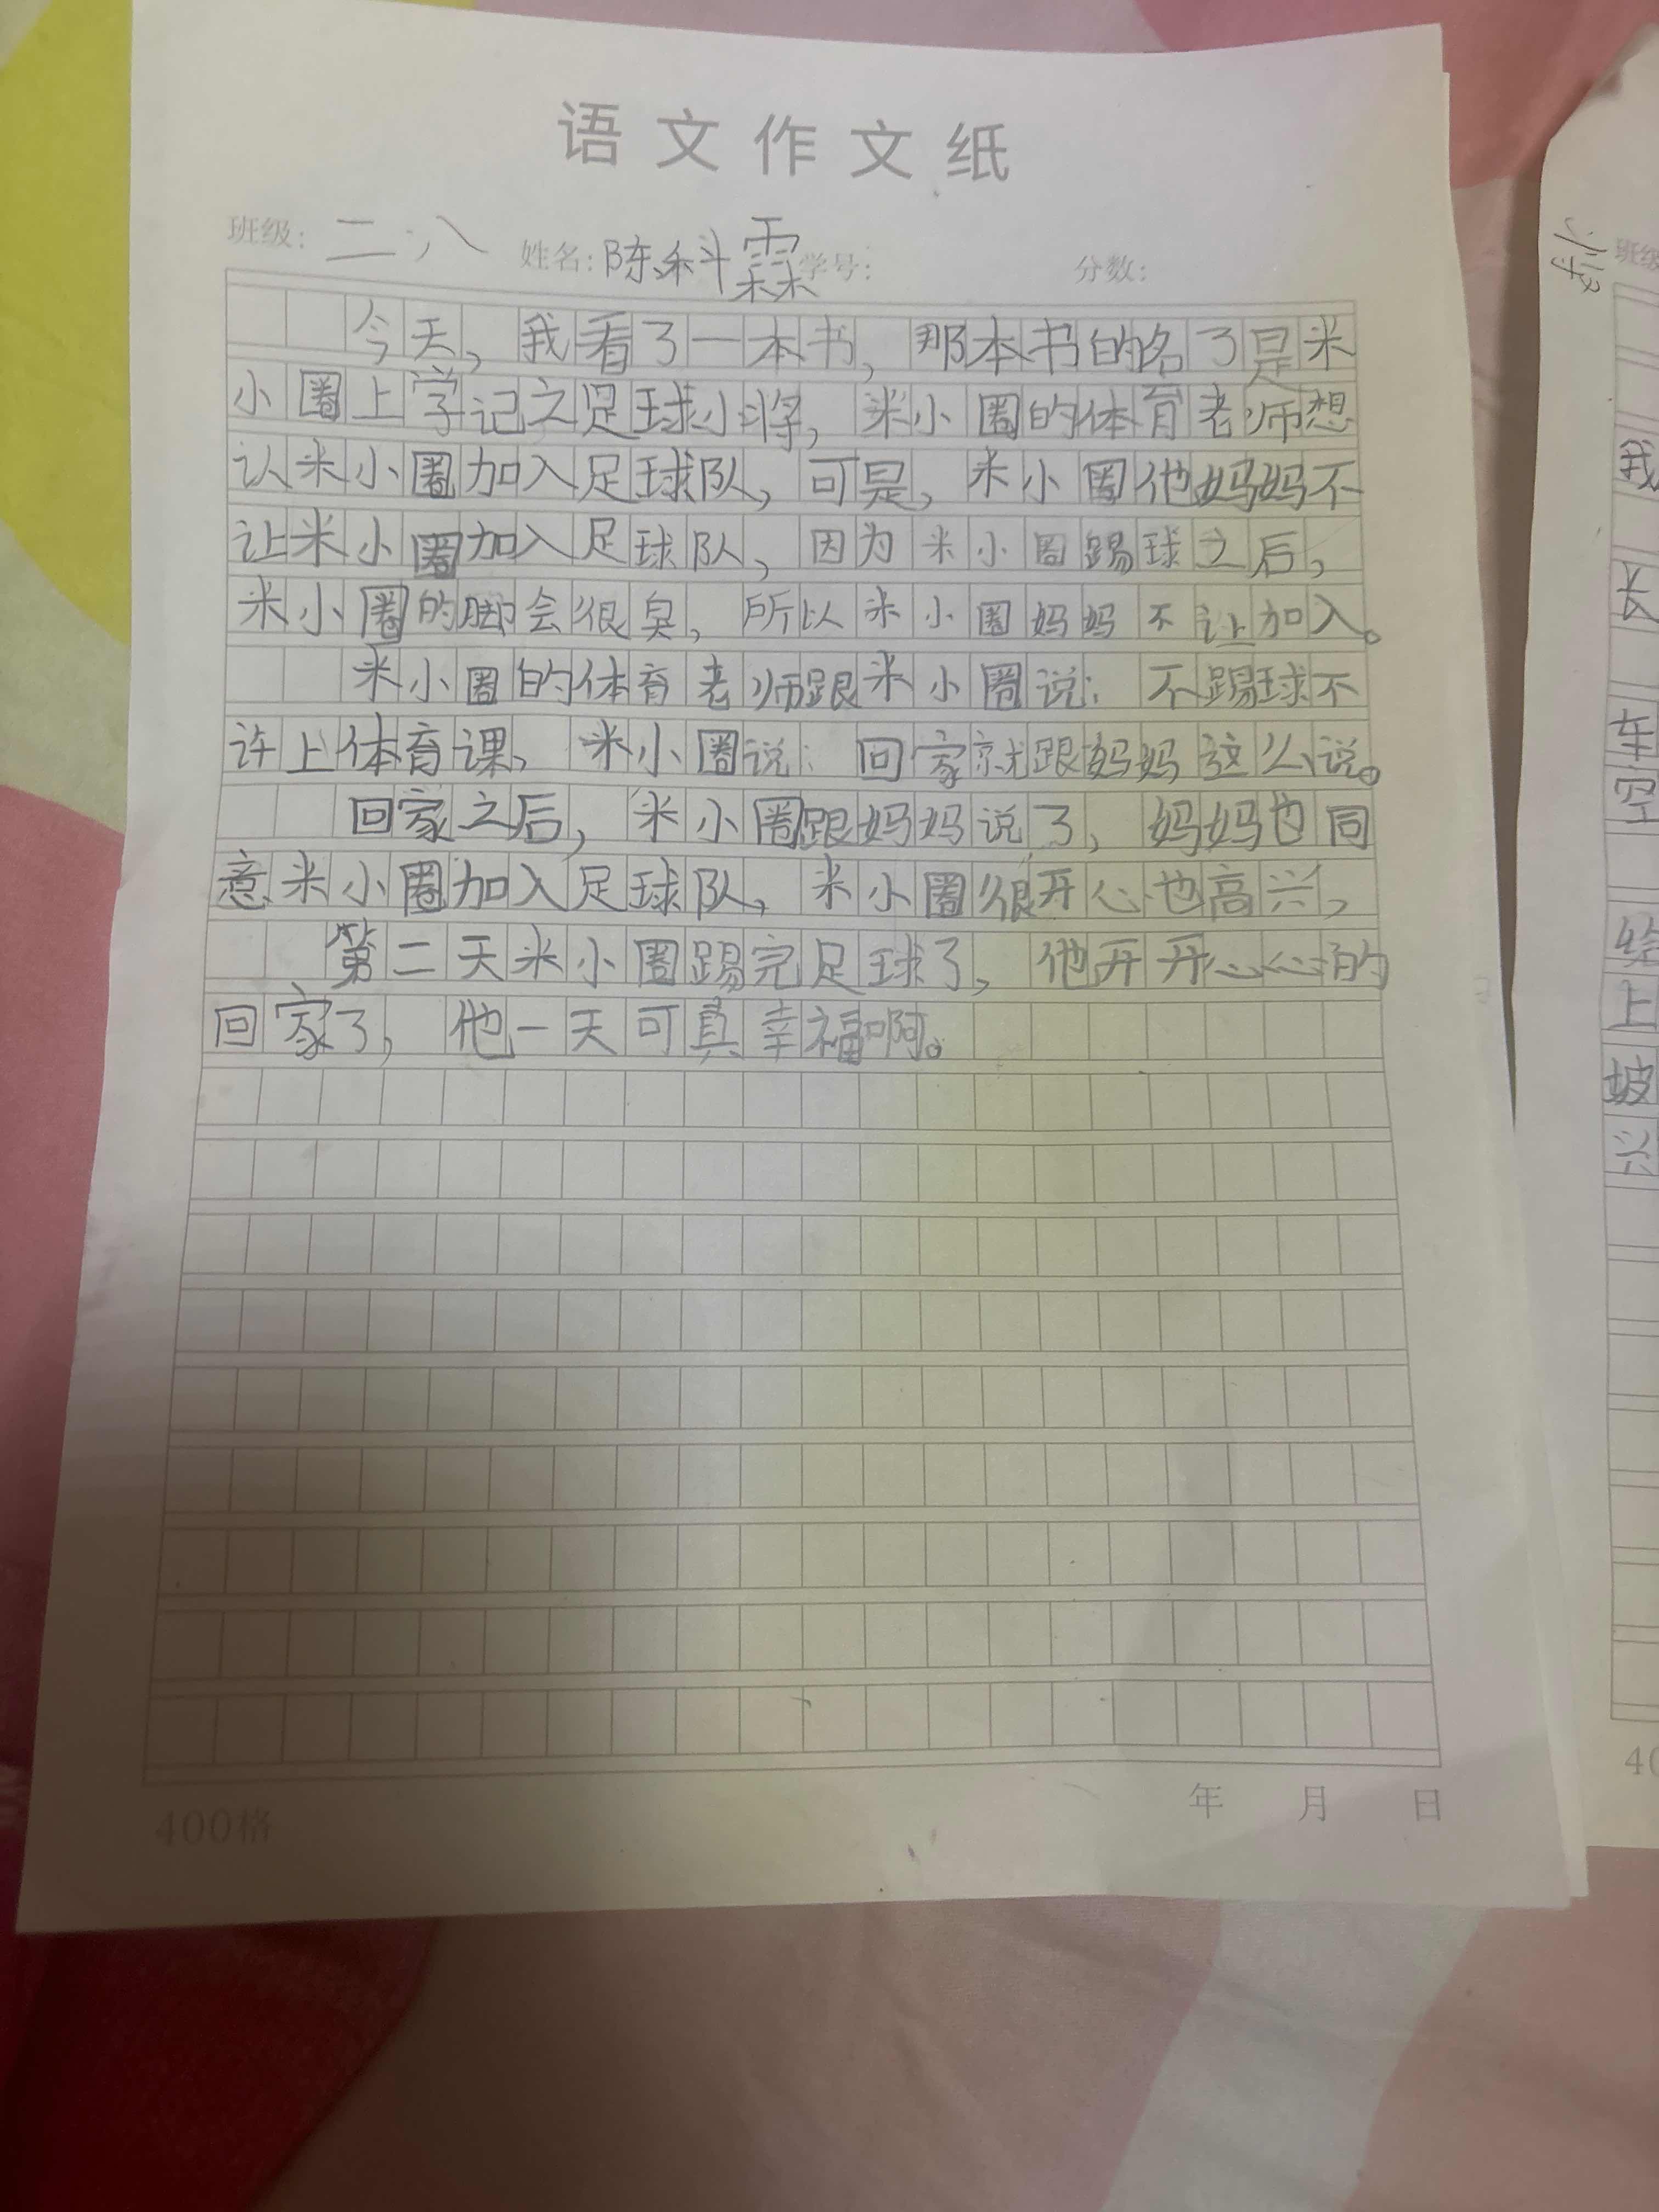 语文作文纸
班级：二、八 姓名：陈科霖 学号： 分数：
今天，我看了一本书，那本书的名了是米
小圈上学记之足球小将，米小圈的体育老师想
认米小圈加入足球队，可是，米小圈他妈妈不
让米小圈加入足球队，因为米小圈踢球之后，
米小圈的脚会很臭，所以米小圈妈妈不让加入。
米小圈的体育老师跟米小圈说：不踢球不
许上体育课，米小圈说：回家就跟妈妈这么说。
回家之后，米小圈跟妈妈说了，妈妈也同
意米小圈加入足球队，米小圈很开心也高兴，
第二天米小圈踢完足球了，他开开心心的
回家了，他一天可真幸福啊。
400格
年 月 日
班级
我
长
车
空
绘
上
坡
兴
40